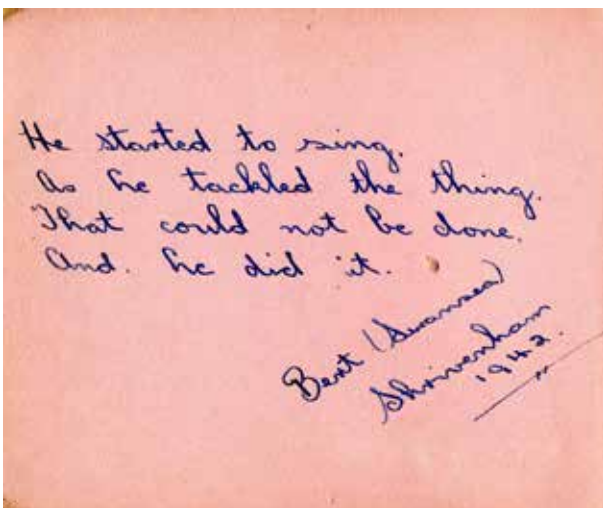 He started to sing.
As he tackled the thing.
That could not be done.
And. he did it.
Bert (Swansea)
Shrivenham
1942.